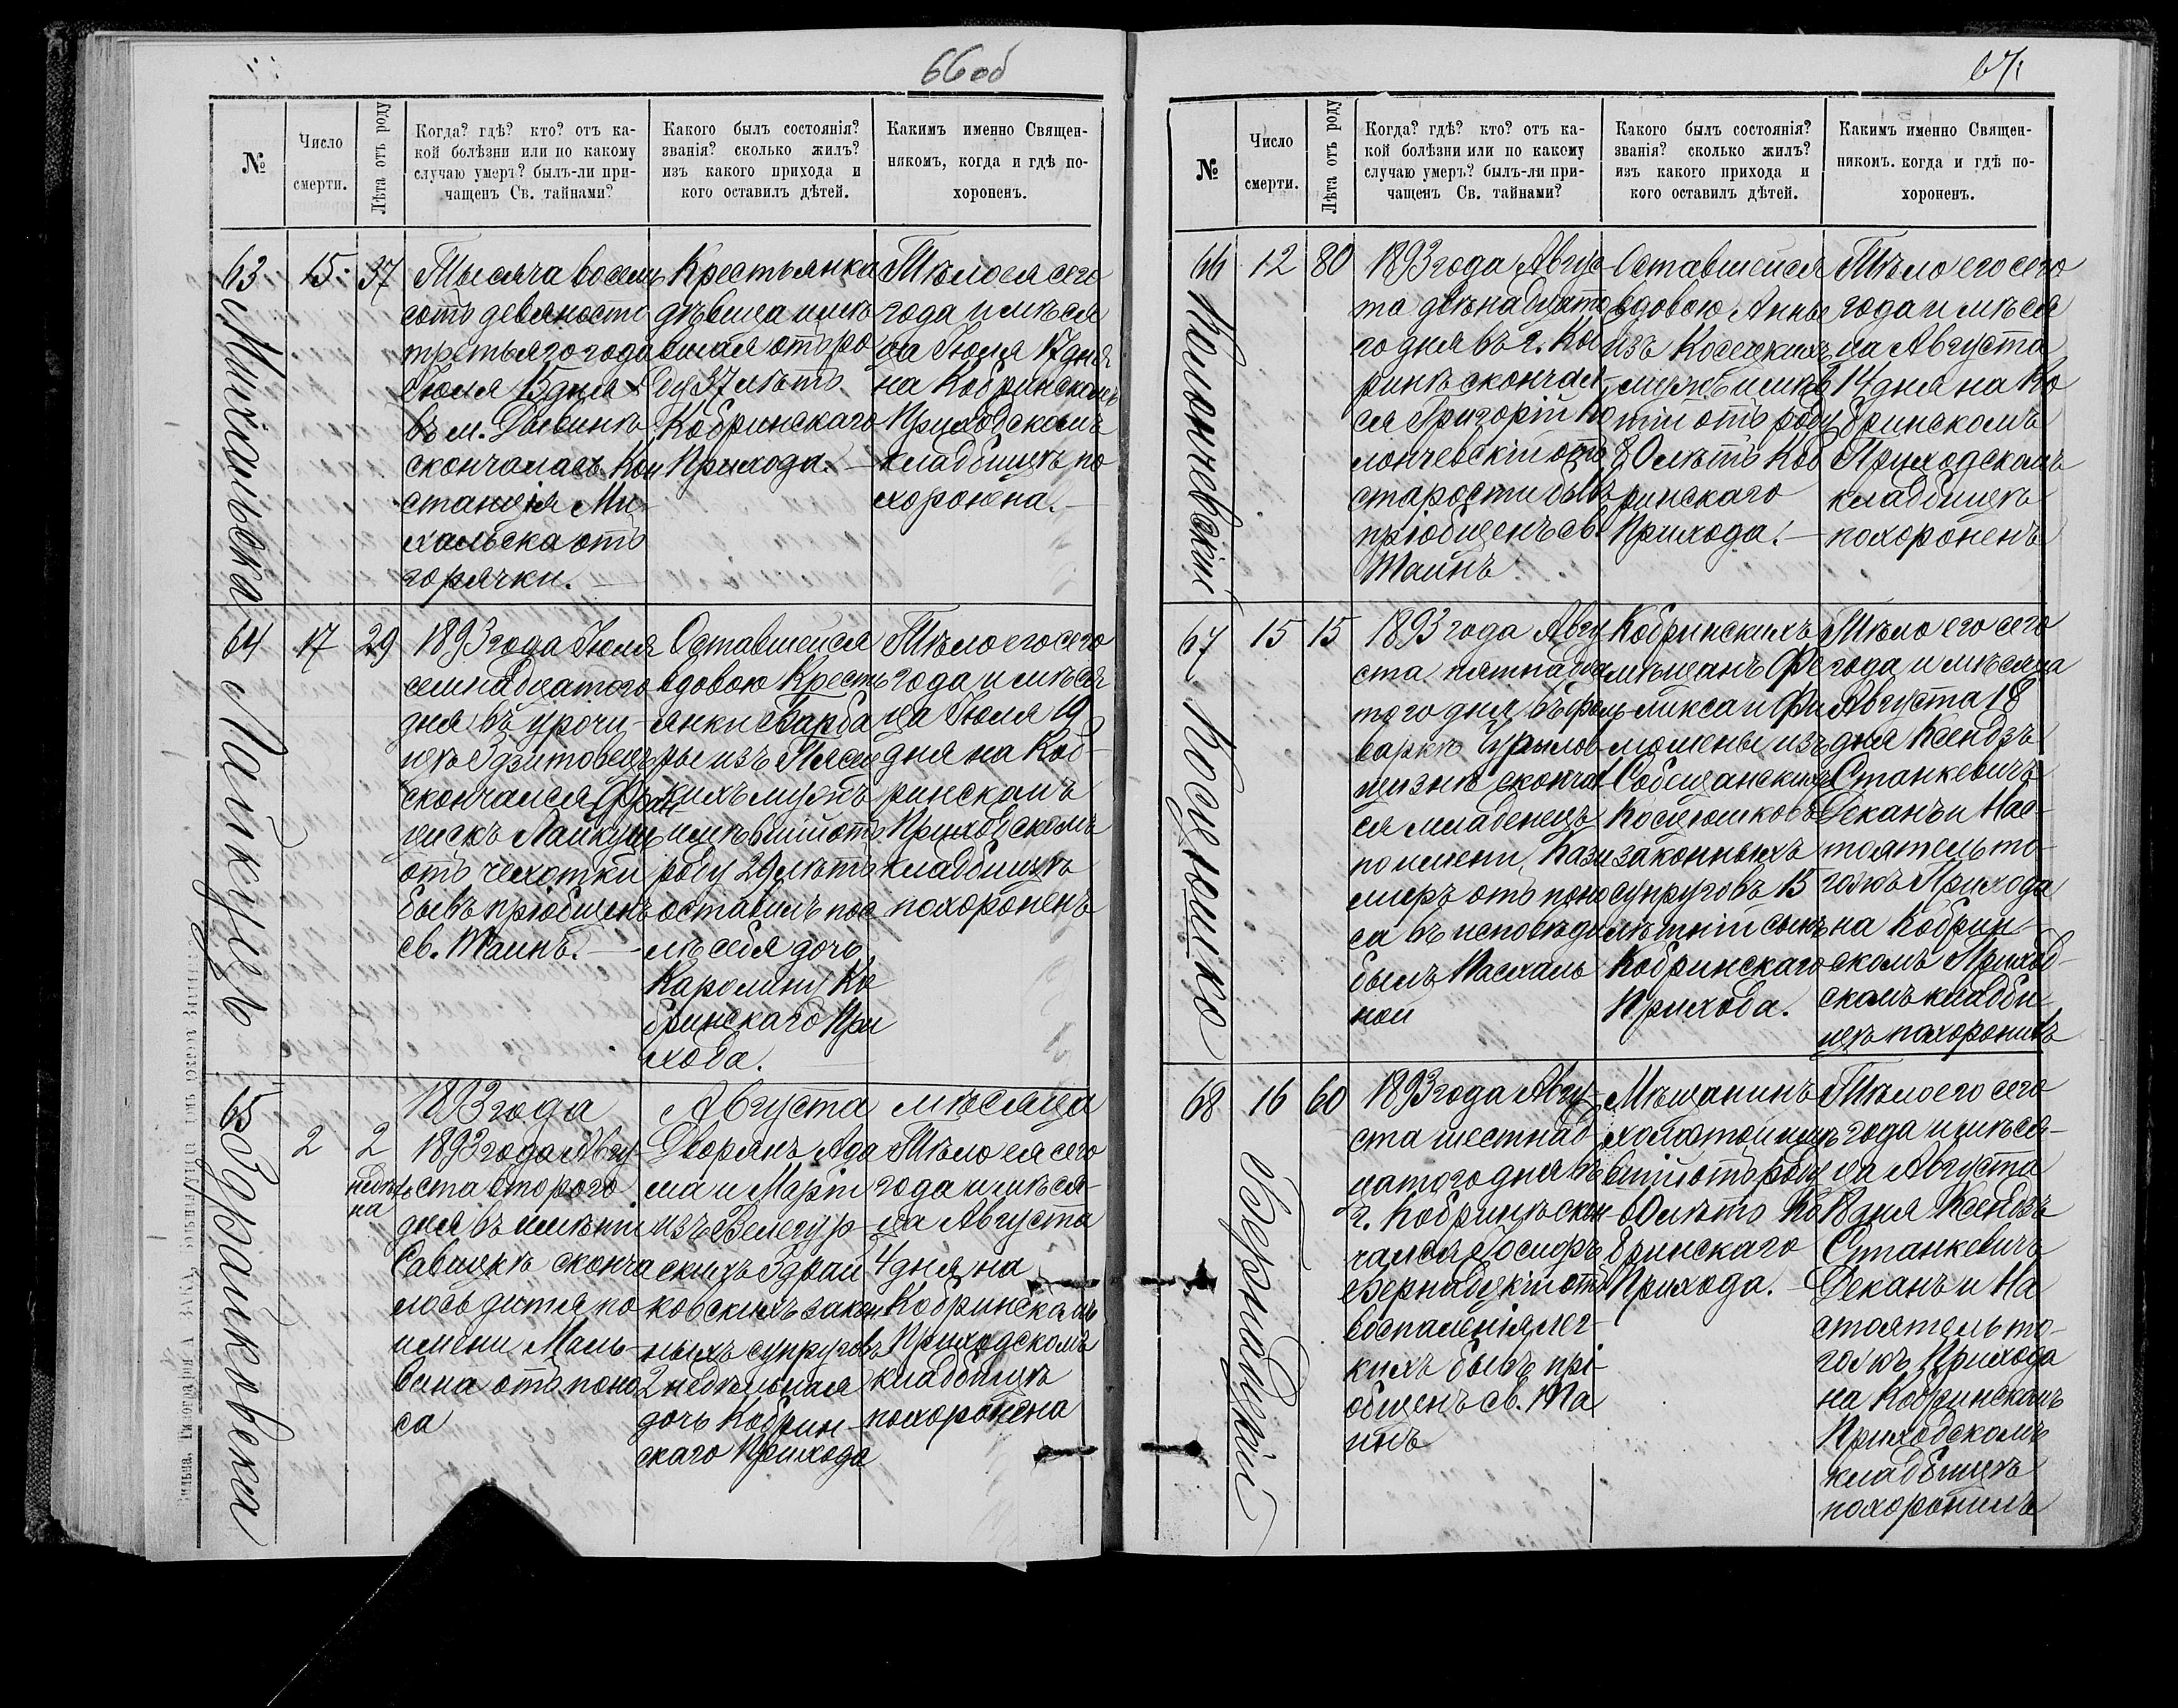 66 об
№
Число
смерти.
Лѣта отъ роду
Когда? гдѣ? кто? отъ ка-
кой болѣзни или по какому
случаю умеръ? былъ-ли при-
чащенъ Св. тайнами?
Какого былъ состоянія?
званія? сколько жилъ?
изъ какого прихода и
кого оставилъ дѣтей.
Какимъ именно Священ-
никомъ, когда и гдѣ по-
хороненъ.
63
Михальска
15
37
Тысяча восемь
сотъ девяносто
третьяго года
Іюля 15 дня
въ м. Дывинѣ
скончалась Кон
станція Ми-
хальска отъ
горячки.
Крестьянка
дѣвица имѣ
вшая отъ ро
ду 37 лѣтъ
Кобринскаго
Прихода.
Тѣло ея сего
года и мѣся
ца Іюля 17 дня
на Кобринскомъ
Приходскомъ
кладбищѣ по
хоронена.
64
Пайкуцъ
17
29
1893 года Іюля
семнадцатого
дня въ урочи-
щѣ Здзитовецъ
скончался Фран
цискъ Пайкуць
отъ чахотки
бывъ пріобщенъ
св. Таинъ.
Оставшейся
вдовою Кресть
янки Варва
ры изъ
кихъ мужъ
имѣвшій отъ
роду 29 лѣтъ
оставилъ пос
лѣ себя дочь
Каролину Ко
бринскаго При
хода.
Тѣло его сего
года и мѣся
ца Іюля 19
дня на Коб-
ринскомъ
Приходскомъ
кладбищѣ
похороненъ
1893 года Августа мѣсяца
65
Здрайковска
2
2
недѣль
на
1893 года Авгу-
ста второго
дня въ имѣніи
скончa
лось дитя по
имени Маль-
вина отъ поно
са
Дворянъ Ада
ма и Маріи
изъ Велегур-
скихъ Здрай
ковскихъ закон
ныхъ супруговъ
2 недѣльная
дочь Кобрин-
скаго Прихода
Тѣло ея сего
года и мѣся-
ца Августа
4 дня на
Кобринскомъ
Приходскомъ
кладбищѣ
похоронена
Вильна. Типографія
67.
№
Число
смерти.
Лѣта отъ роду
Когда? гдѣ? кто? отъ ка-
кой болѣзни или по какому
случаю умеръ? былъ-ли при-
чащенъ Св. тайнами?
Какого былъ состоянія?
званія? сколько жилъ?
изъ какого прихода и
кого оставилъ дѣтей.
Какимъ именно Священ-
никомъ. когда и гдѣ по-
хороненъ.
66
Колончевскій
12
80
1893 года Авгус-
та двѣнадцато
го дня въ г. Коб
ринѣ скончал-
ся Григорій Ко
лончевскій отъ
старости бывъ
пріобщенъ св.
Таинъ
Оставшейся
вдовою Анны
изъ Косецкихъ
мужъ имѣв
шій отъ роду
80 лѣтъ Коб
ринскаго
Прихода.
Тѣло его сего
года и мѣся
ца Августа
14 дня на Ко
бринскомъ
Приходскомъ
кладбищѣ
похороненъ
67
Косцюшко
15
15
1893 года Авгу
ста пятнадца
того дня въ фоль-
варкѣ
скончал
ся младенецъ
по имени Кази
миръ отъ поно
са въ исповѣди
былъ Пасхаль
ной
Кобринскихъ
мѣщанъ Фе
ликса и Фи
ломены изъ
Собещанскихъ
Косцюшковъ
законныхъ
супруговъ 15
лѣтній сынъ
Кобринскаго
Прихода.
Тѣло его сего
года и мѣсяца
Августа 18
дня Ксендзъ
Станкевичъ
Деканъ и Нас-
тоятель то-
гожъ Прихода
на Кобрин-
скомъ Приход-
скомъ кладби-
щѣ похоронилъ
68
Бернацкій
16
60
1893 года Авгу-
ста шестнад
цатого дня въ
г. Кобринѣ скон
чался Іосифъ
Бернацкій отъ
воспаленія лег-
кихъ бывъ прі-
общенъ св. Та
инъ
Мѣщанинъ
холостой имѣ
вшій отъ роду
60 лѣтъ Ко
бринскаго
Прихода.
Тѣло его сего
года и мѣся-
ца Августа
18 дня Ксендзъ
Станкевичъ
Деканъ и На
стоятель то-
гожъ Прихода
на Кобринскомъ
Приходскомъ
кладбищѣ
похоронилъ